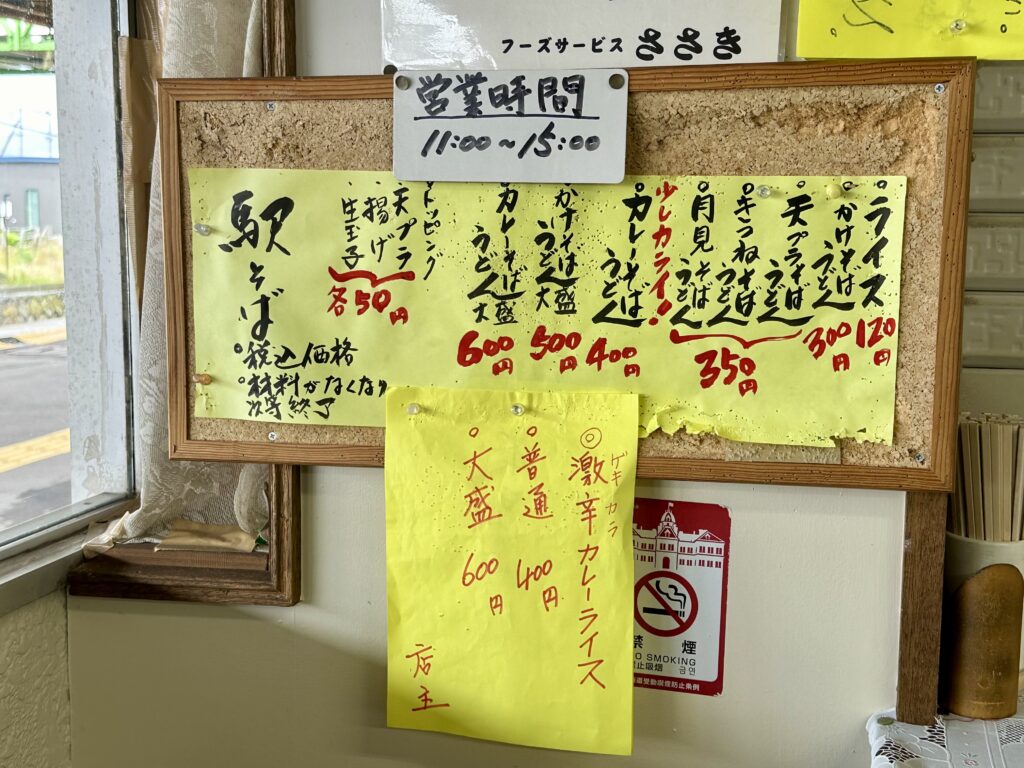 フーズサービス ささき
営業時間
11:00~15:00
○ライス
120円
○かけそば
うどん
300円
○天プラそば
うどん
○きつねそば
うどん
○月見そば
うどん
350円
少しカライ!
○カレーそば
うどん
400円
かけそば大盛
うどん
500円
カレーそば大盛
うどん
600円
トッピング
天プラ
揚げ
生玉子
各50円
駅そば
○税込価格
○材料がなくなり
次第終了
◎激辛カレーライス
ゲキカラ
○普通 400円
○大盛 600円
店主
禁煙
NO SMOKING
금연